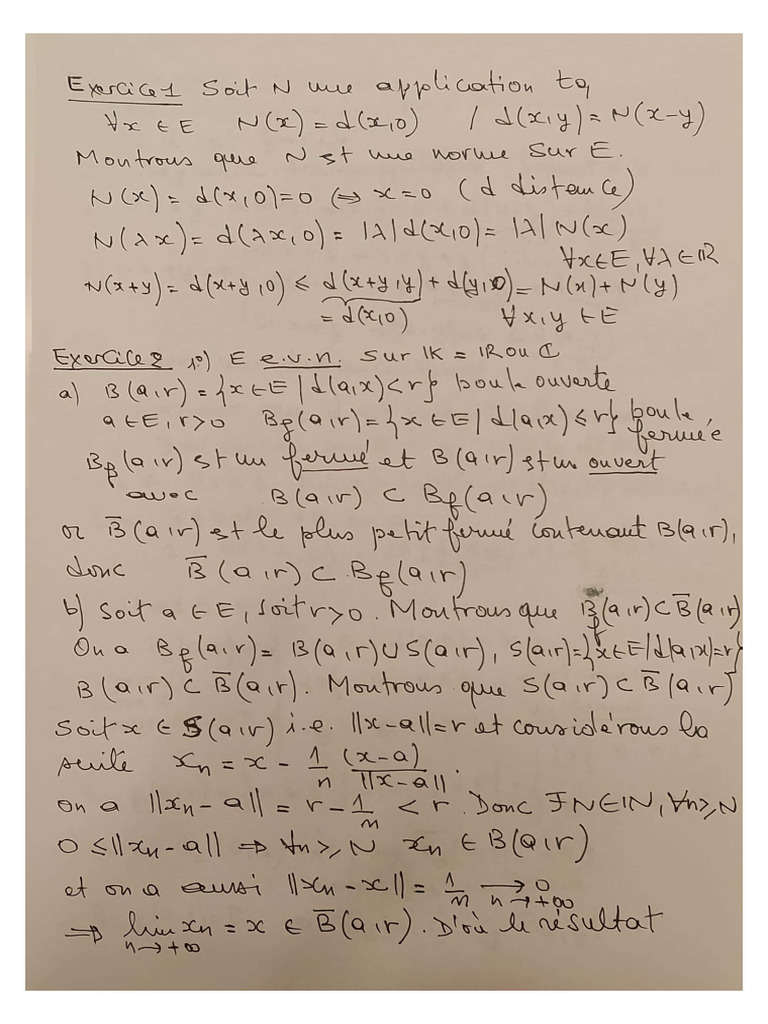 Exercice 1 Soit N une application tq
∀x ∈ E N(x) = d(x,0) / d(x,y) = N(x-y)
Montrons que N est une norme sur E.
N(x) = d(x,0)=0 ⇔ x=0 (d distance)
N(λx) = d(λx,0) = |λ|d(x,0) = |λ|N(x)
∀x∈E, ∀λ∈ℝ
N(x+y) = d(x+y,0) ≤ d(x+y,y) + d(y,0) = N(x)+N(y)
= d(x,0) ∀x,y ∈ E
Exercice 2 1°) E e.v.n. sur K = ℝ ou ℂ
a) B(a,r) = {x ∈ E | d(a,x) < r} boule ouverte
a ∈ E, r>0 Bf(a,r) = {x ∈ E | d(a,x) ≤ r} boule fermée
Bf(a,r) est un fermé et B(a,r) est un ouvert
avec B(a,r) ⊂ Bf(a,r)
or B̅(a,r) est le plus petit fermé contenant B(a,r),
donc B̅(a,r) ⊂ Bf(a,r)
b) Soit a ∈ E, soit r>0. Montrons que Bf(a,r) ⊂ B̅(a,r)
On a Bf(a,r) = B(a,r) ∪ S(a,r), S(a,r)={x∈E|d(a,x)=r}
B(a,r) ⊂ B̅(a,r). Montrons que S(a,r) ⊂ B̅(a,r)
Soit x ∈ S(a,r) i.e. ||x-a||=r et considérons la
suite xn = x - 1/n (x-a)/||x-a||.
on a ||xn - a|| = r - 1/n < r. Donc ∃N∈ℕ, ∀n≥N
0 ≤ ||xn - a|| ⇒ ∀n≥N xn ∈ B(a,r)
et on a aussi ||xn - x|| = 1/n → 0 n→+∞
⇒ lim xn = x ∈ B̅(a,r). D'où le résultat
n→+∞